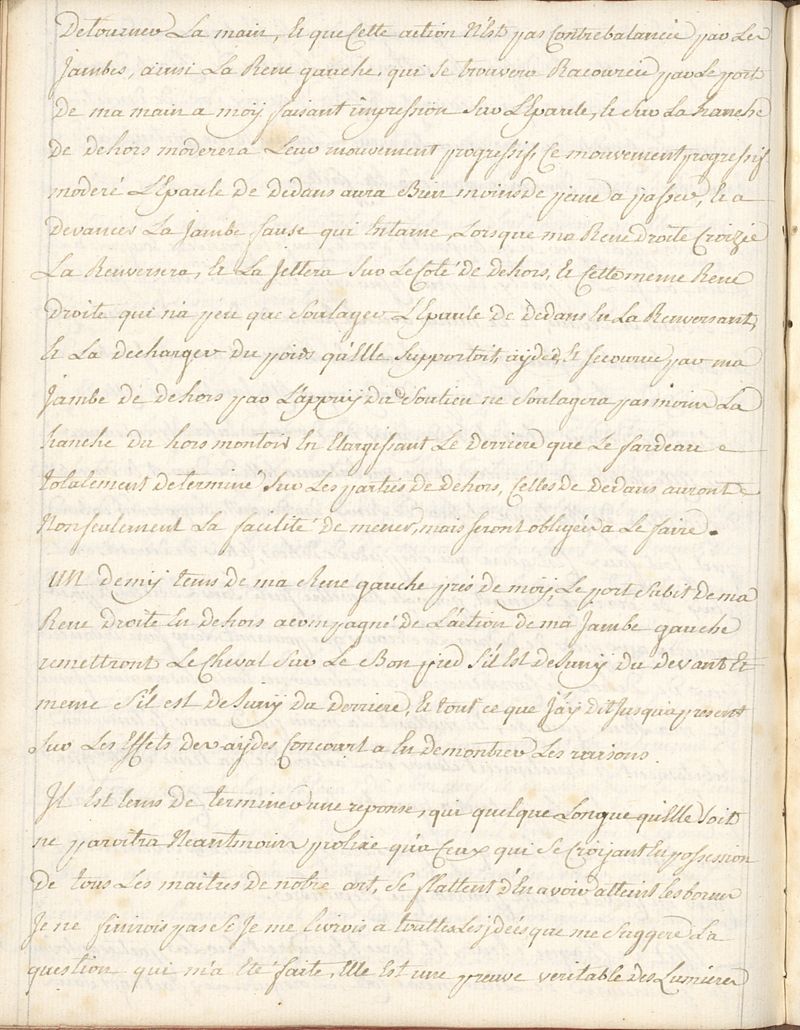 Detourner La main, Et que Cette action N'est pas Contrebalancée par Les
Jambes, ainsi La Rene gauche, qui se trouvera Racourcie par Le port
De ma main a moy faisant impression Sur L'Epaule, Et Sur La hanche
De dehors moderera Leur mouvement progressif, Ce mouvement progressif
moderé L'Epaule De Dedans aura Bien moins de peine a passer, Et a
Devancer La Jambe fause qui Entame, Lorsque ma Rene Droite Croizée
La Renversera, Et La Jettera Sur Le Coté De dehors, Et Cette meme Rene
Droite qui n'a peu que Soulager L'Epaule De Dedans En La Renversant,
Et La Decharger Du poids qu'Elle Supportoit, aydée, Et secourue par ma
Jambe de dehors par L'appuy du Soutien ne Soulagera pas moins La
hanche Du hors montoir En Elargissant Le Derriere que Le fardeau
totalement Determiné Sur Les parties De dehors, Celles de Dedans auront
Non seulement La facilité De mener, mais seront obligées a Le faire.
UN Demy tems de ma Rene gauche prés de moy, Le port Subit De ma
Rene Droite En dehors acompagné De L'action De ma Jambe gauche
remettront Le Cheval Sur Le Bon pied S'il Est Desuny Du devant Et
meme S'il est Desuny Du Derriere, Et tout ce que J'ay Dit Jusqu'a present
Sur Les Effets des aydes Concourt a En Demontrer Les raisons.
Il Est tems De terminer une reponse, qui quelque Longue qu'Elle Soit
ne paroitra Neantmoins prolixe qu'a Ceux qui Se Croyant En possession
De tous Les maitres De notre art, Se flattent D'En avoir atteint Les bornes
Je ne finirois pas Si Je me Livrois a touttes Les jdées que me Suggere La
question qui m'a Eté faite, Elle Est une preuve veritable des Lumieres